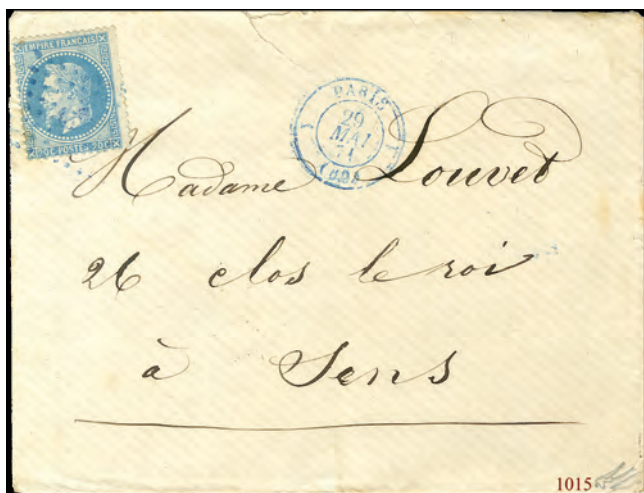 EMPIRE FRANÇAIS
20C POSTES 20C
PARIS
29
MAI
71
(60)
Madame Louvet
26 clos le roi
à Sens
1015